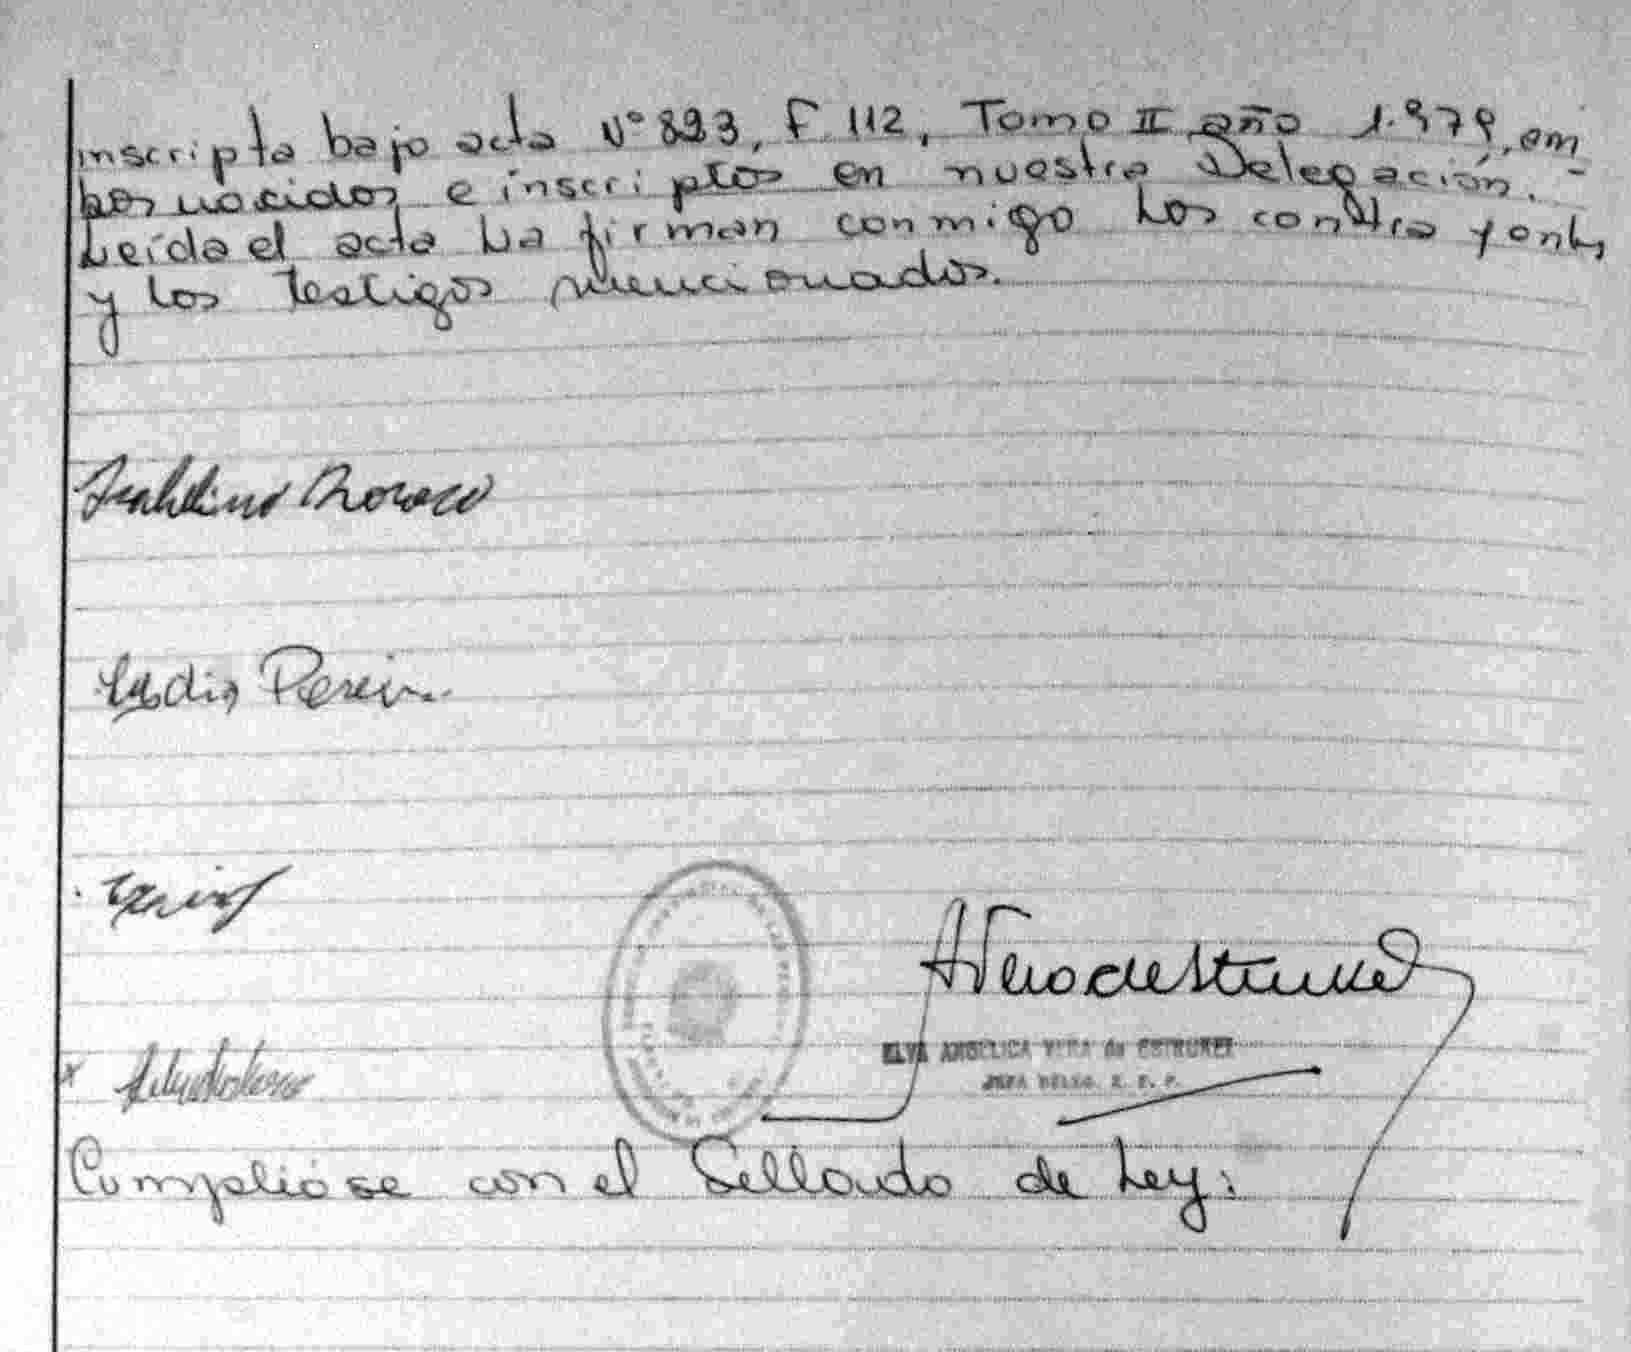 inscripta bajo acta Nº 893, F 112, Tomo II año 1.979, am
bos nacidos e inscriptos en nuestra Delegación.-
Leída el acta La firman conmigo Los contrayentes
y los testigos mencionados.
Lydia Pereira
AVeradeEstruker
ELVA ANGELICA VERA de
JEFA DELEG. R. C. P.
Cumplióse con el Sellado de Ley: